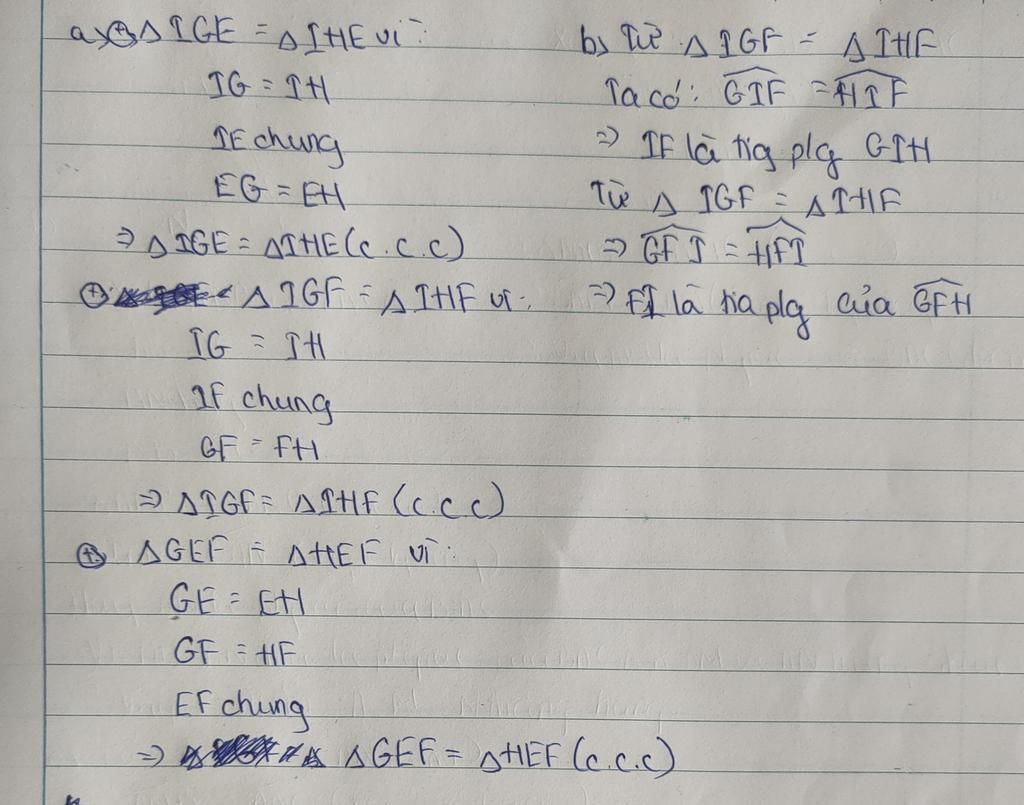 a) ⊕ Δ IGE = Δ IHE vì:
IG = IH
IE chung
EG = EH
⇒ Δ IGE = Δ IHE (c.c.c)
⊕ Δ IGF = Δ IHF vì:
IG = IH
IF chung
GF = FH
⇒ Δ IGF = Δ IHF (c.c.c)
⊕ Δ GEF = Δ HEF vì:
GE = EH
GF = HF
EF chung
⇒ Δ GEF = Δ HEF (c.c.c)
b) Từ Δ IGF = Δ IHF
Ta có: \widehat{GIF} = \widehat{HIF}
⇒ IF là tia plg GIH
Từ Δ IGF = Δ IHF
⇒ \widehat{GFI} = \widehat{HFI}
⇒ FI là tia plg của \widehat{GFH}